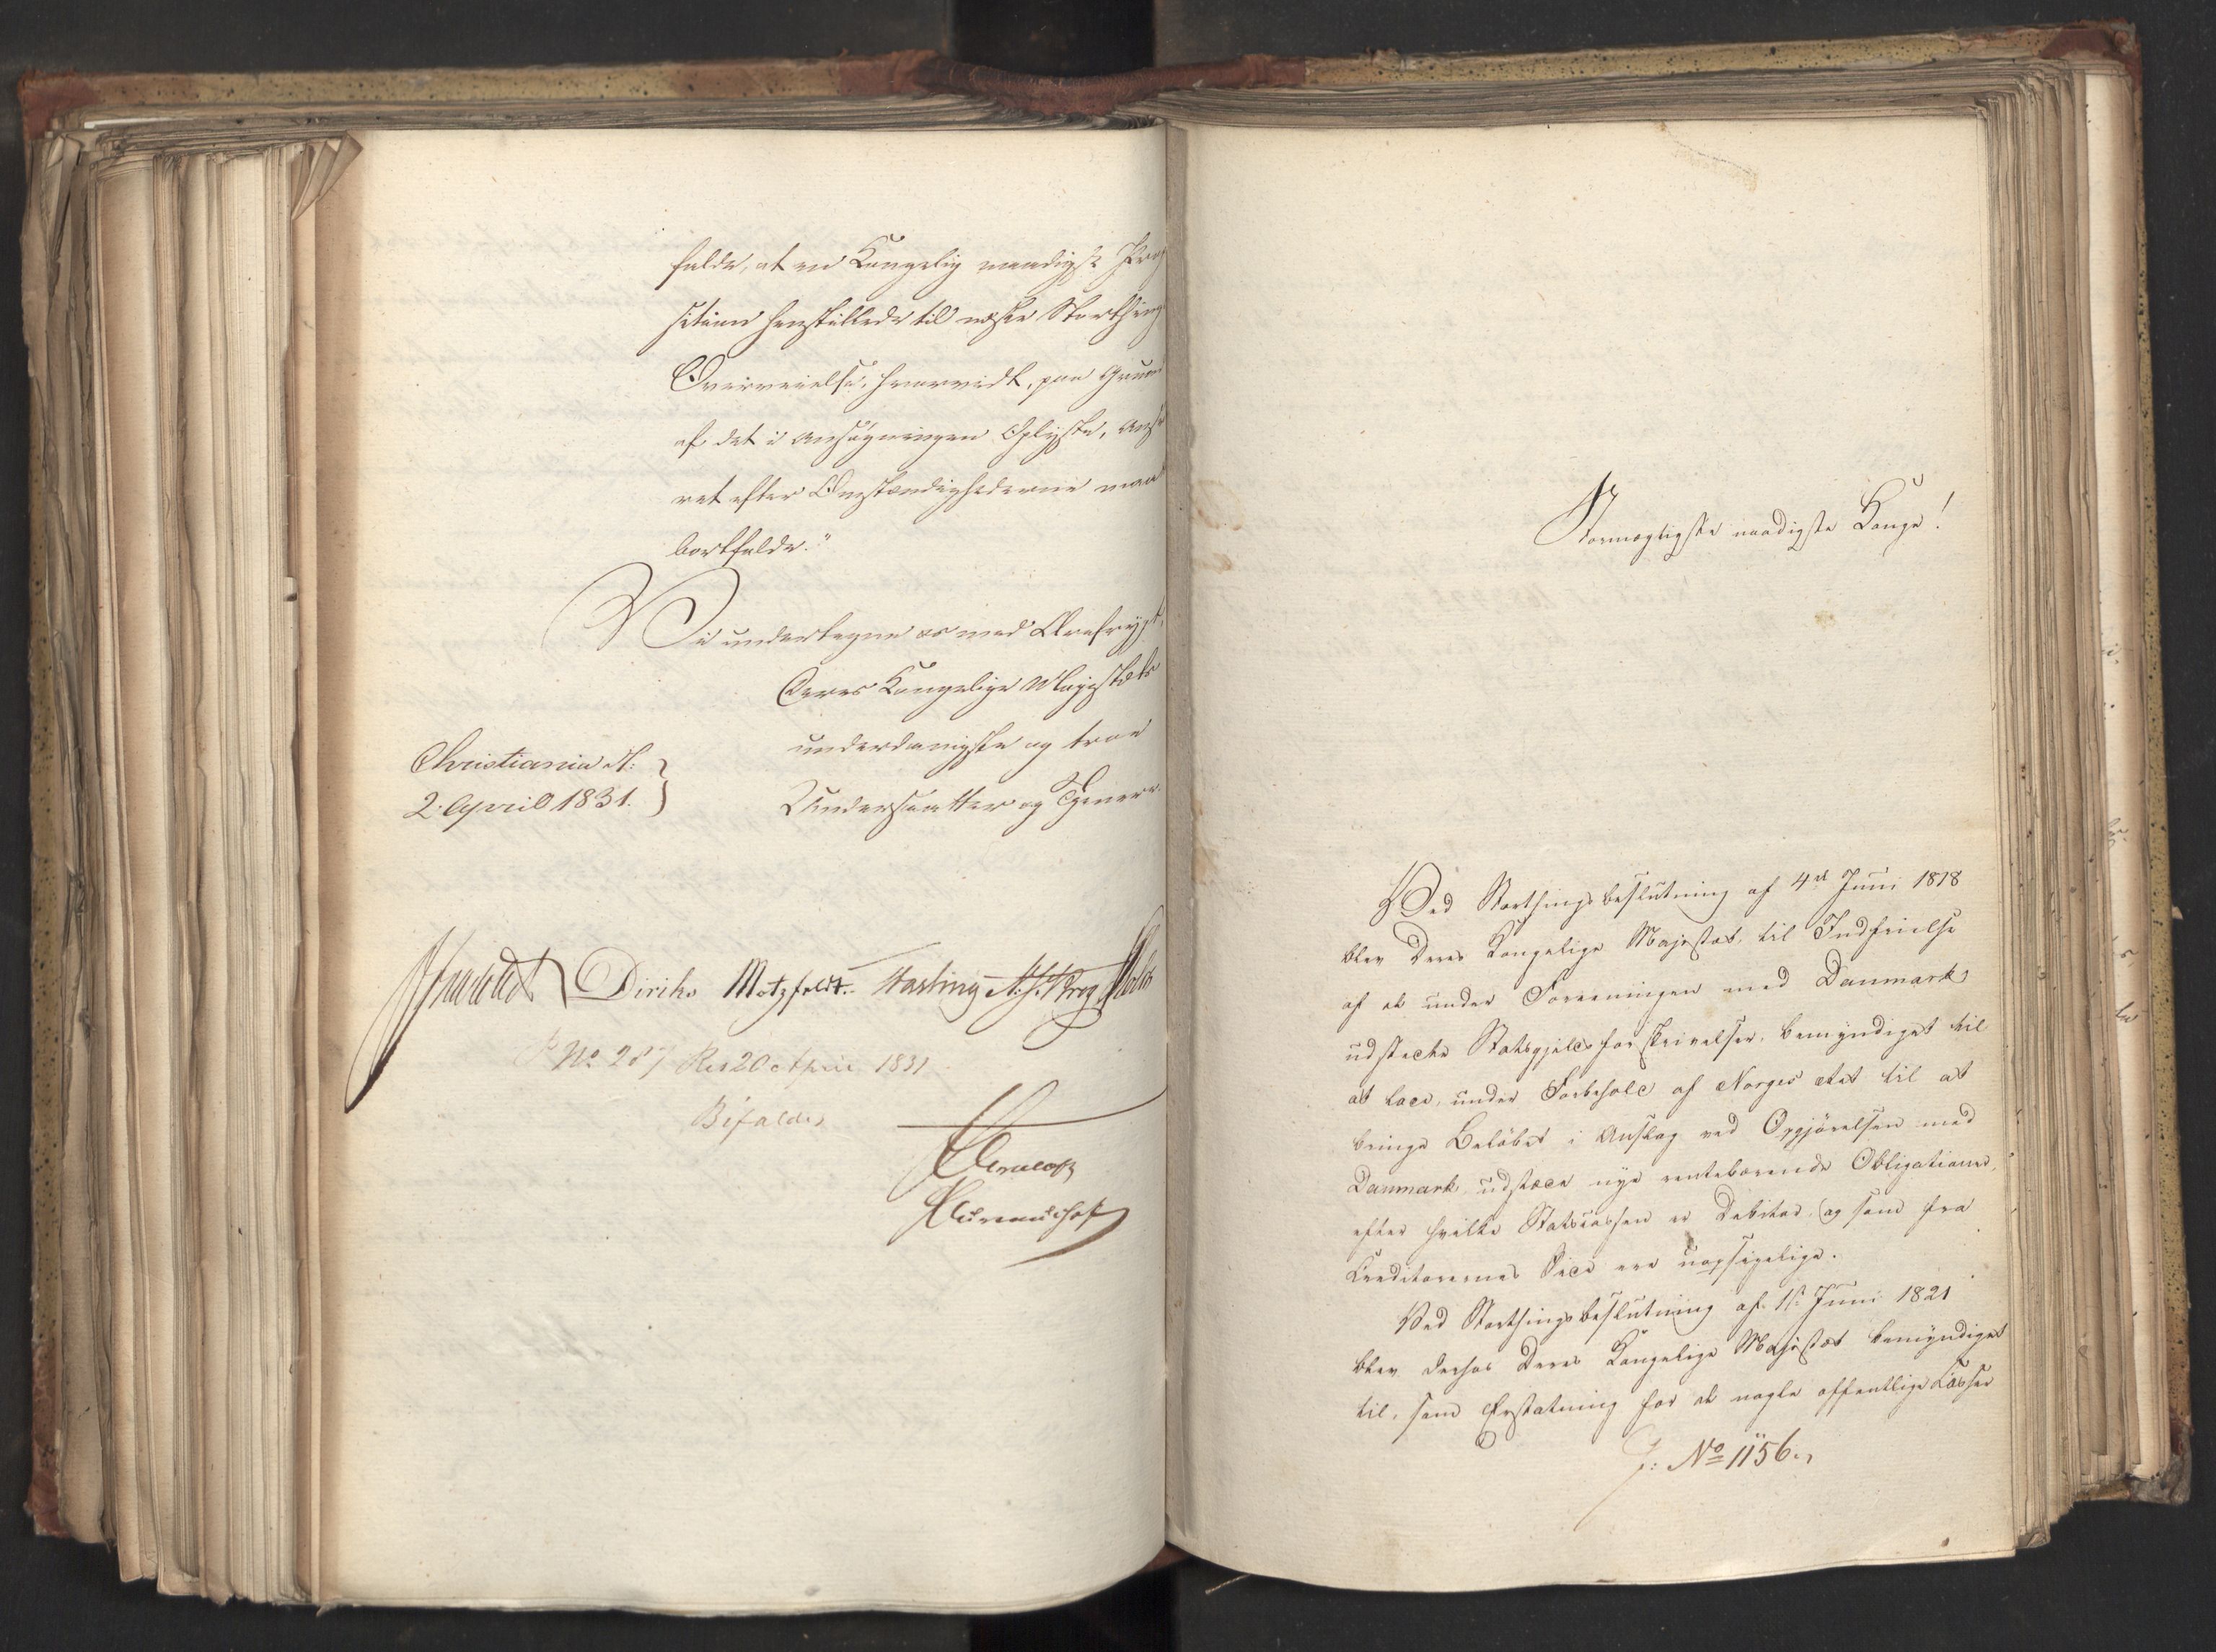 falde, at en Kongelig naadigst Pro
sition henstillede til næste Storthings
Overveielse, hvorvidt, paa Grund
af det i Ansøgningen Oplyste, Ansva
ret efter Omstændighederne maa
bortfalde."
Vi undertegne os med Ærefrygt,
Deres Kongelige Majestæts
underdanigste og troe
Christiania d:
2. April 1831.
Undersaatter og Tjenere.
Diriks Motzfeldt. Fasting Krog Holst
No 287 Res 20 April 1831
Bifaldes
Stormægtigste naadigste Konge!
Ved Storthingsbeslutning af 4de Juni 1818
blev Deres Kongelige Majestæt, til Indfrielse
af de under Foreeningen med Danmark
udstedte Statsgjeldsforskrivelser, bemyndiget til
at lade, under Forbehold af Norges Ret til at
bringe Beløbet i Anslag ved Opgjørelsen med
Danmark udstæde nye rentebærende Obligationer,
efter hvilke Statscassen er Debitor, og som fra
Creditorernes Side ere uopsigelige.
Ved Storthingsbeslutning af 1ste Juni 1821
blev derhos Deres Kongelige Majestæt bemyndiget
til, som Erstatning for de nogle offentlige Casser
J: No 1156.